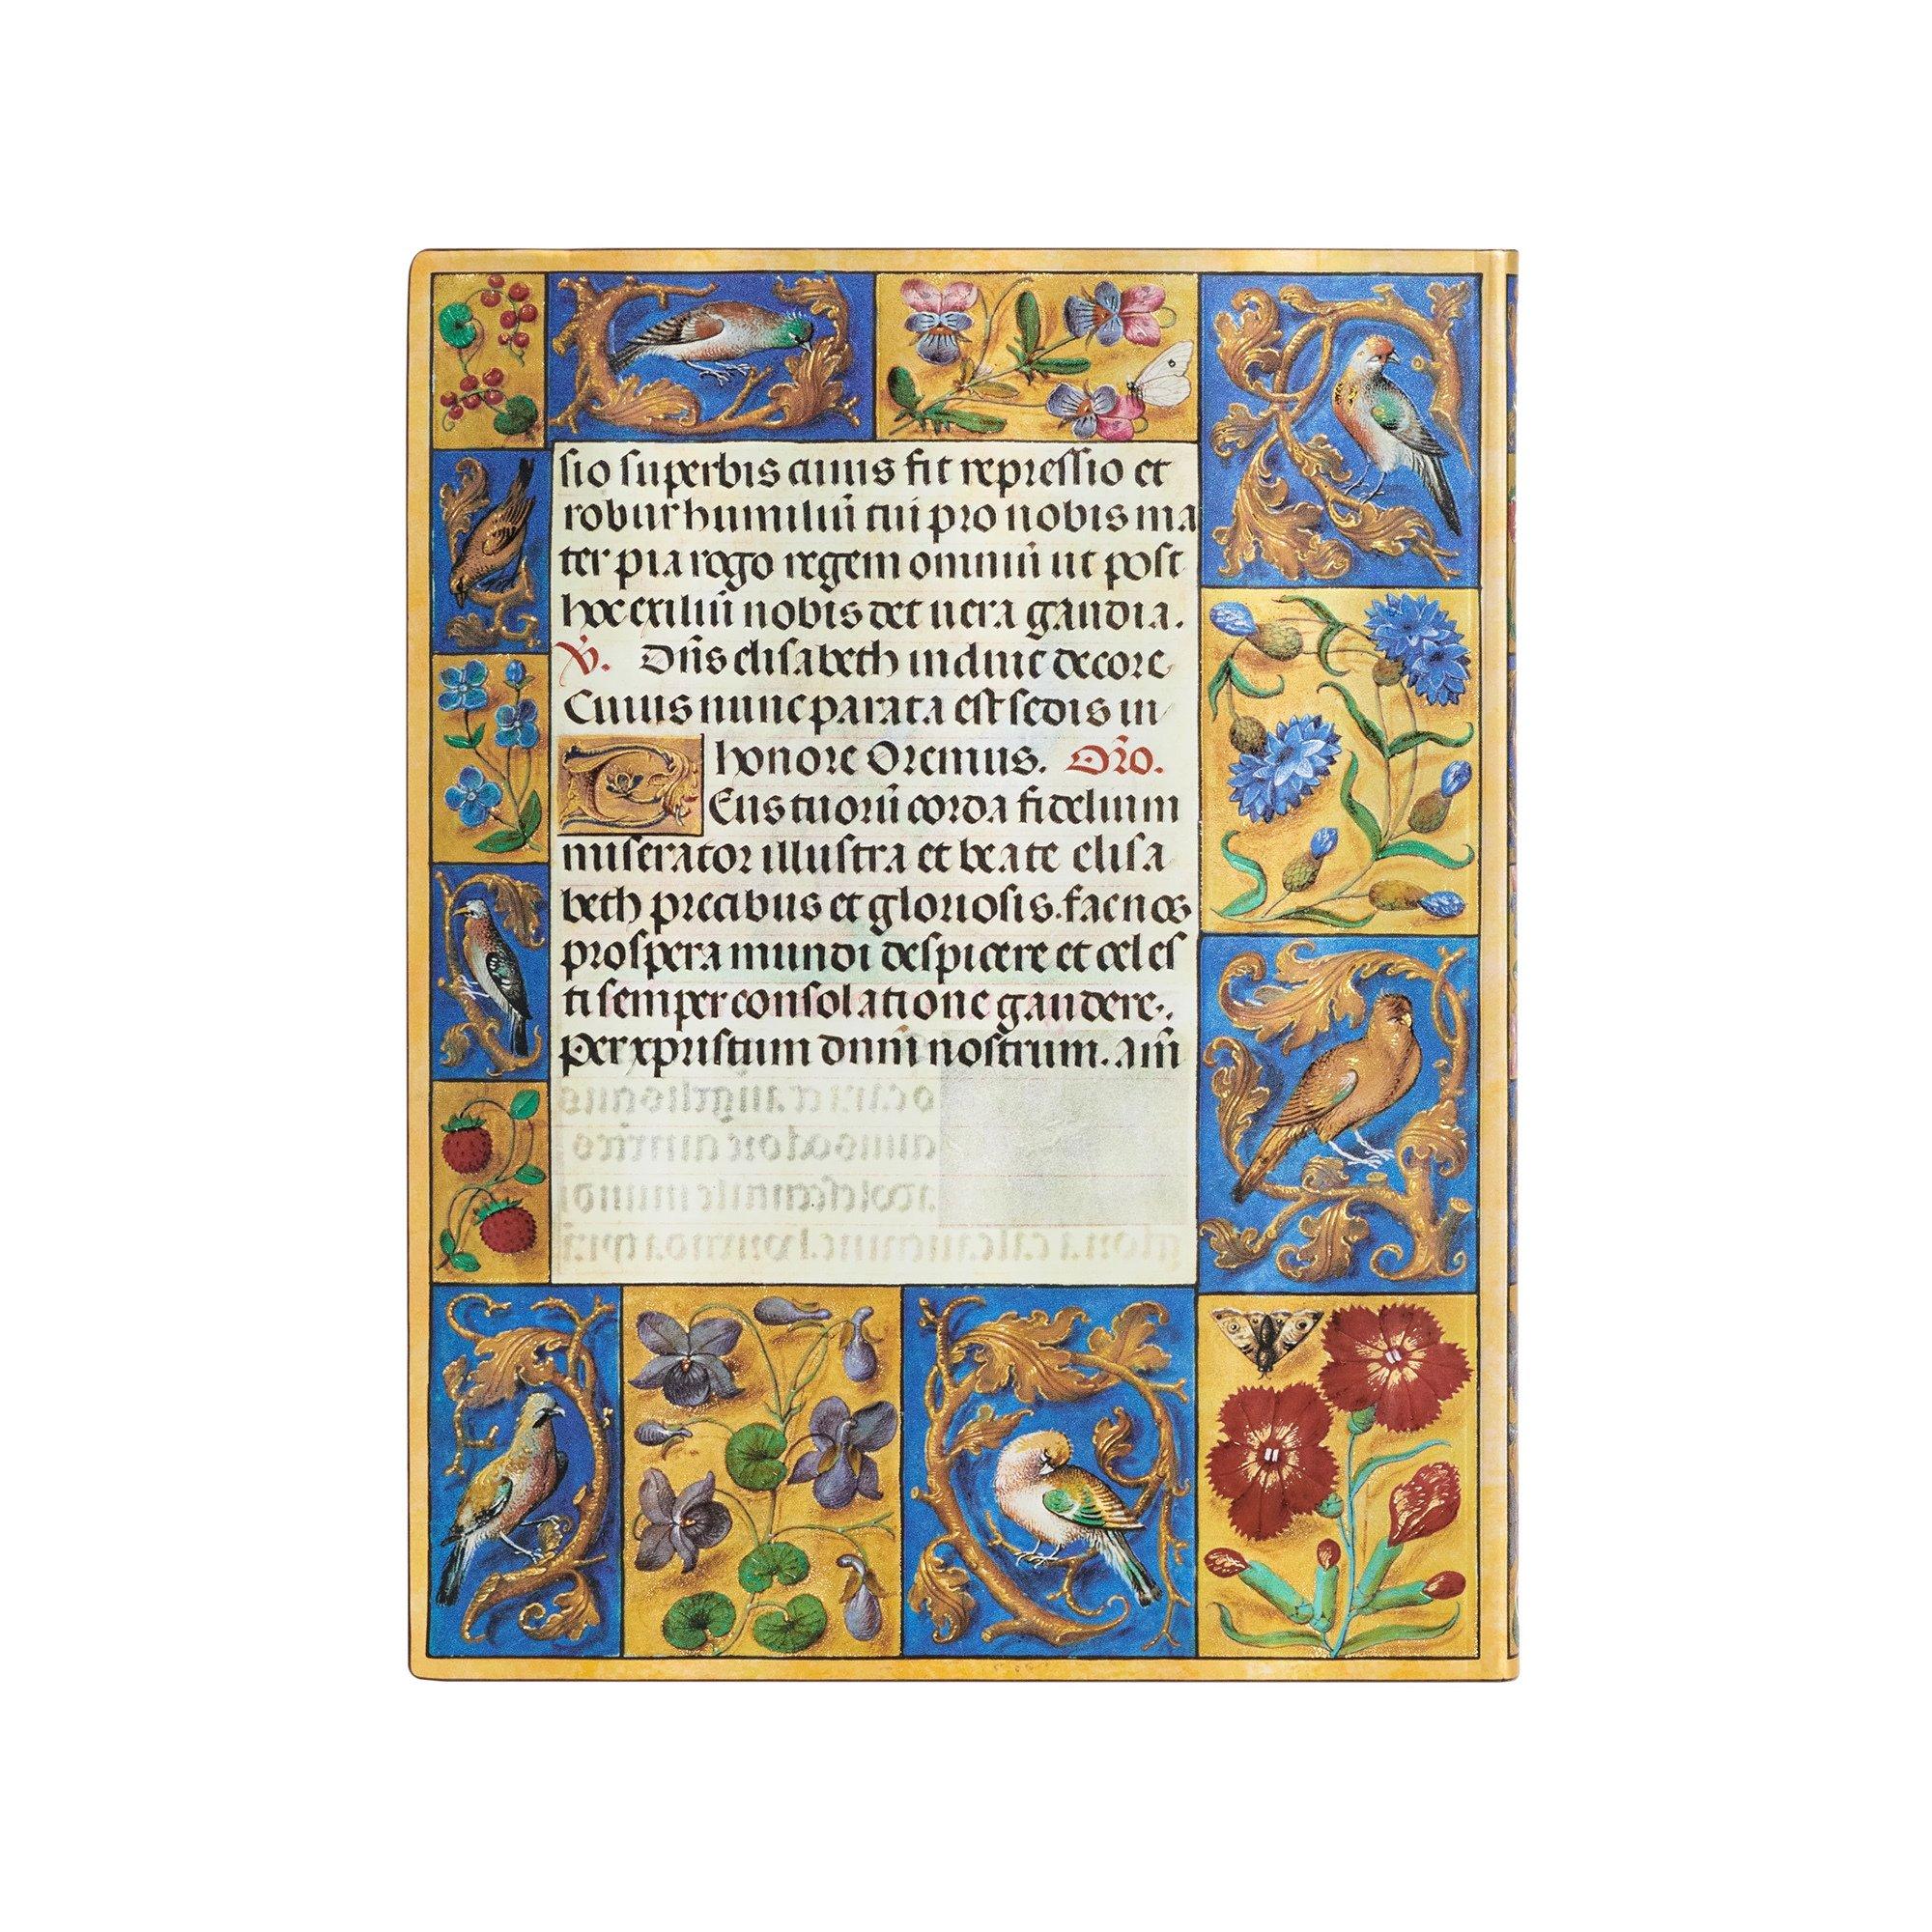 sio superbis cuius fit repressio et
robur humiliũ tui pro nobis ma
ter pia rogo regem omniũ ut post
hoc exiliũ nobis det uera gaudia.
V. Dñs elisabeth induit decore
Cuius nunc parata est sedis in
honore Oremus. Orõ.
DEus tuorũ corda fidelium
miserator illustra et beate elisa
beth precibus et gloriosis. fac nos
prospera mundi despicere et celes
ti semper consolatione gaudere.
Per xpristum dnm̃ nostrum. am̃